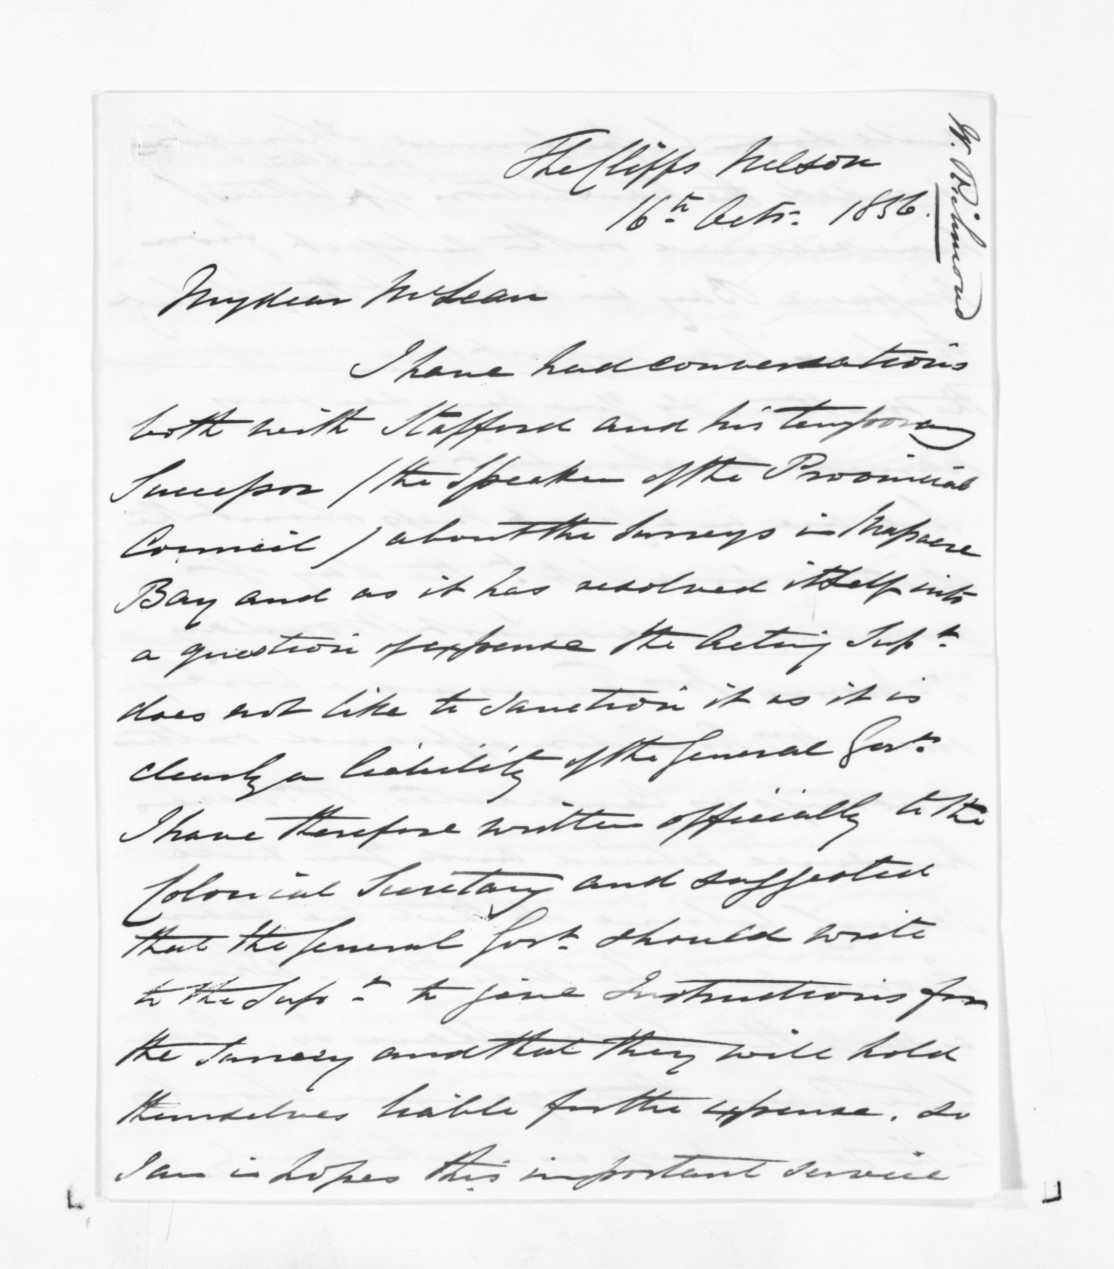 W. Richmond
The Cliffs Nelson
16th Octr. 1856.
My dear McLean
I have had conversations
both with Stafford and his temporary
Successor / the Speaker of the Provincial
Council / about the Surveys in Massacre
Bay and as it has resolved itself into
a question of expense the Acting Supt
does not like to sanction it as it is
clearly a liability of the General Govt.
I have therefore written officially to the
Colonial Secretary and suggested
that the General Govt. should write
to the Supt to give Instructions for
the Survey and that they will hold
themselves liable for the expense. So
I am in hopes this important service